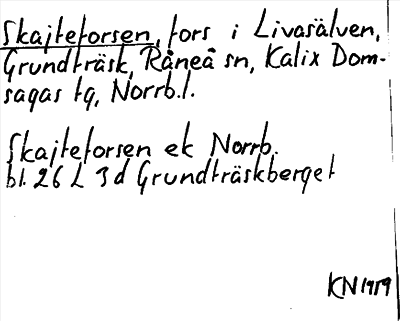 Skajteforsen, fors i Livasälven,
Grundträsk, Råneå sn, Kalix Dom-
sagas tg, Norrb.l.
Skajteforsen ek Norrb.
bl. 26 L 3d Grundträskberget
KN 1959